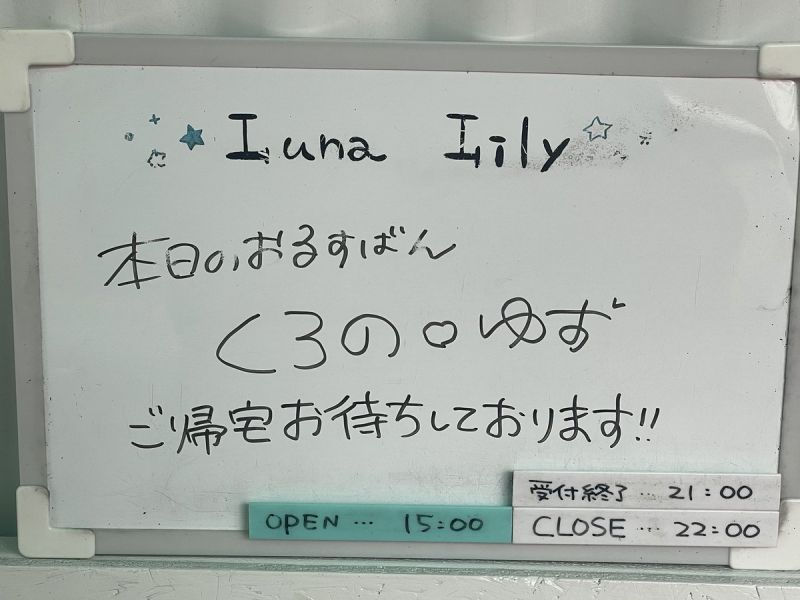 Luna Lily
本日のおるすばん
くろの♡ゆず
ご帰宅お待ちしております!!
受付終了 … 21:00
OPEN … 15:00
CLOSE … 22:00